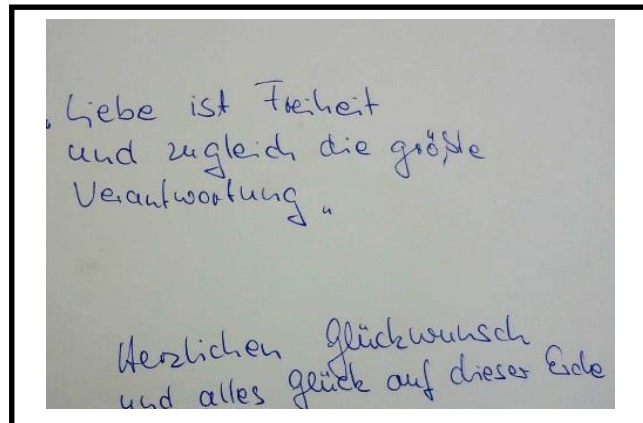 „Liebe ist Freiheit
und zugleich die größte
Verantwortung"
Herzlichen Glückwunsch
und alles Glück auf dieser Erde